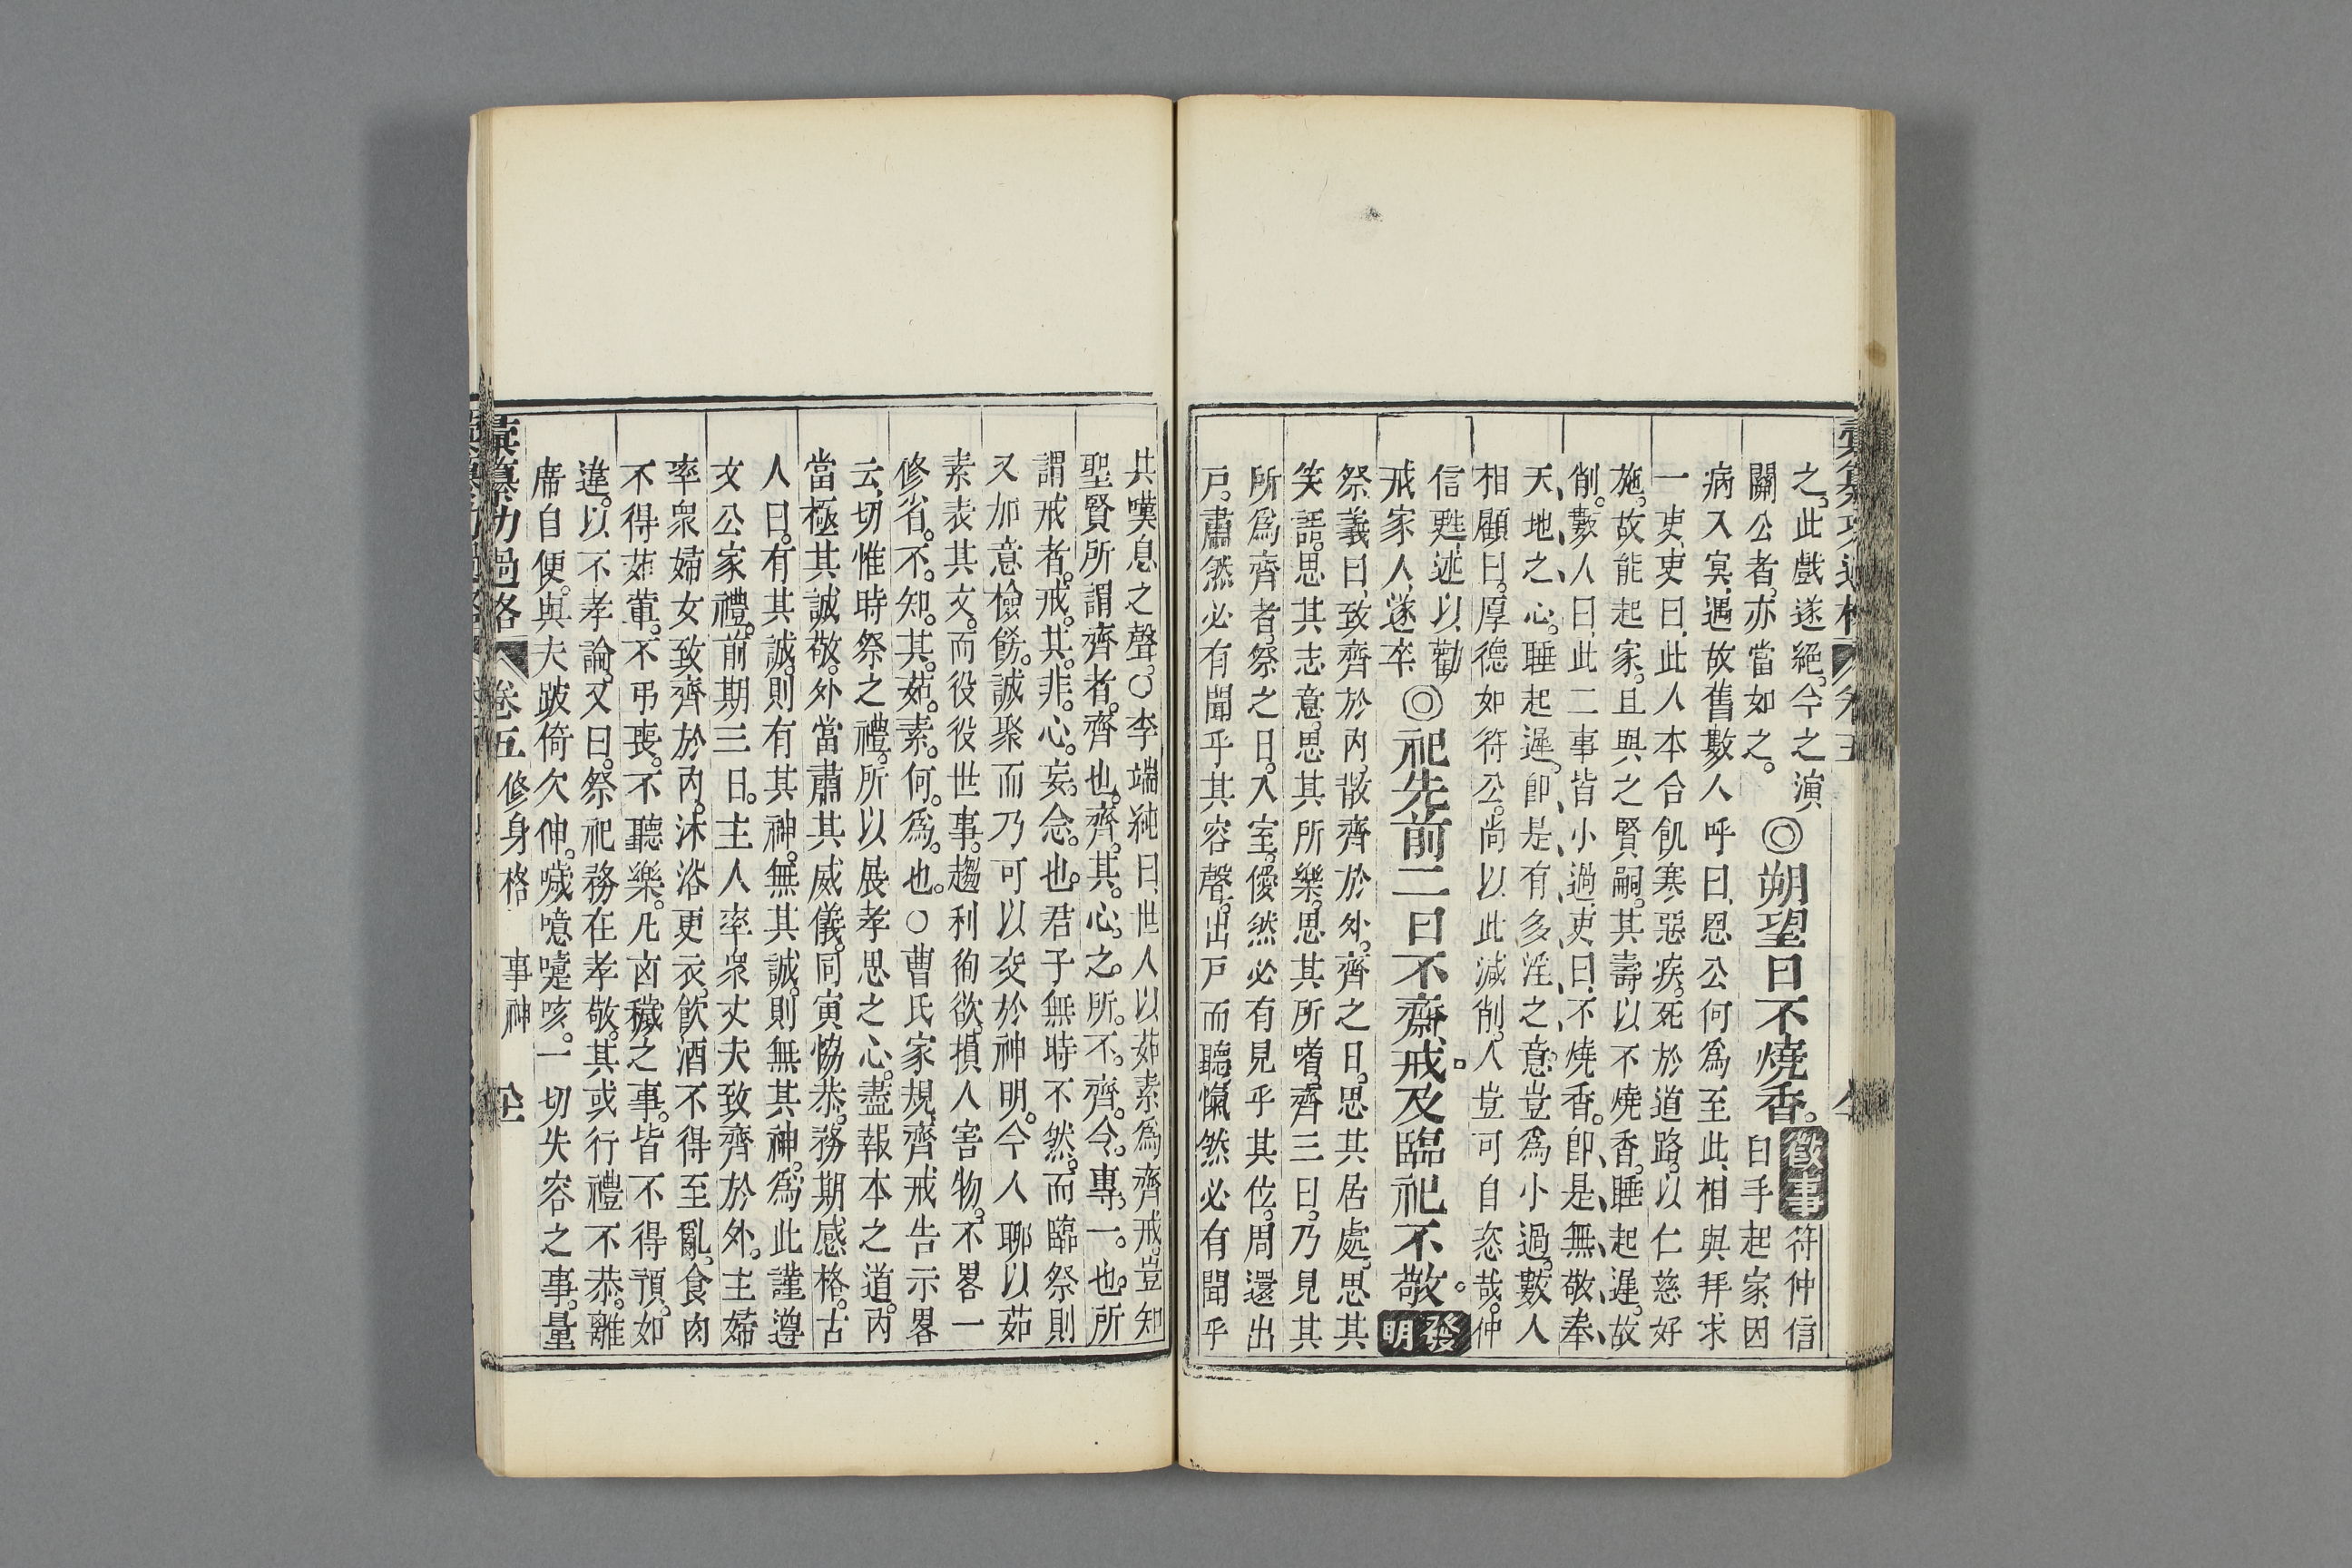 彙纂功過格 卷五
之。此戲遂絕。今之演
關公者。亦當如之。
◎朔望日不燒香。
徵事
符仲信
白手起家、因
病入冥、遇故舊數人呼曰、恩公何爲至此、相與拜求
一吏、吏曰、此人本合飢寒惡疾。死於道路。以仁慈好
施。故能起家。且與之賢嗣。其壽以不燒香。睡起遲。故
削。數人曰、此二事皆小過、吏曰、不燒香。卽是無敬奉
天地之心。睡起遲。卽是有多淫之意。豈爲小過。數人
相顧曰。厚德如符公。尚以此減削。人豈可自恣哉。仲
信甦、述以勸
戒家人、遂卒
◎祀先前二日不齋戒。及臨祀不敬。
發明
祭義曰、致齊於內、散齊於外。齊之日。思其居處。思其
笑語。思其志意。思其所樂。思其所嗜。齊三日。乃見其
所爲齊者。祭之日。入室。僾然必有見乎其位。周還出
戶。肅然必有聞乎其容聲。出戶而聽、愾然必有聞乎
其嘆息之聲。○李端純曰、世人以茹素爲齊戒。豈知
聖賢所謂齊者。齊也。齊。其。心。之。所。不。齊。令。專。一。也。所
謂戒者。戒。其。非。心。妄。念。也。君子無時不然。而臨祭則
又加意檢飭。誠聚而乃可以交於神明。今人聊以茹
素表其文。而役役世事。趨利徇欲、損人害物。不畧一
修省。不。知。其。茹。素。何。爲。也。○曹氏家規、齊戒告示畧
云、切惟時祭之禮。所以展孝思之心。盡報本之道。內
當極其誠敬。外當肅其威儀。同寅恊恭。務期感格。古
人曰。有其誠。則有其神。無其誠。則無其神。爲此謹遵
文公家禮。前期三日。主人率衆丈夫致齊於外。主婦
率衆婦女致齊於內。沐浴更衣。飲酒不得至亂。食肉
不得茹葷。不弔喪。不聽樂。凡凶穢之事。皆不得預。如
違。以不孝論。又曰。祭祀務在孝敬。其或行禮不恭。離
席自便。與夫跛倚欠伸。噦噫嚏咳。一切失容之事。量
彙纂功過格 卷五 修身格 事神